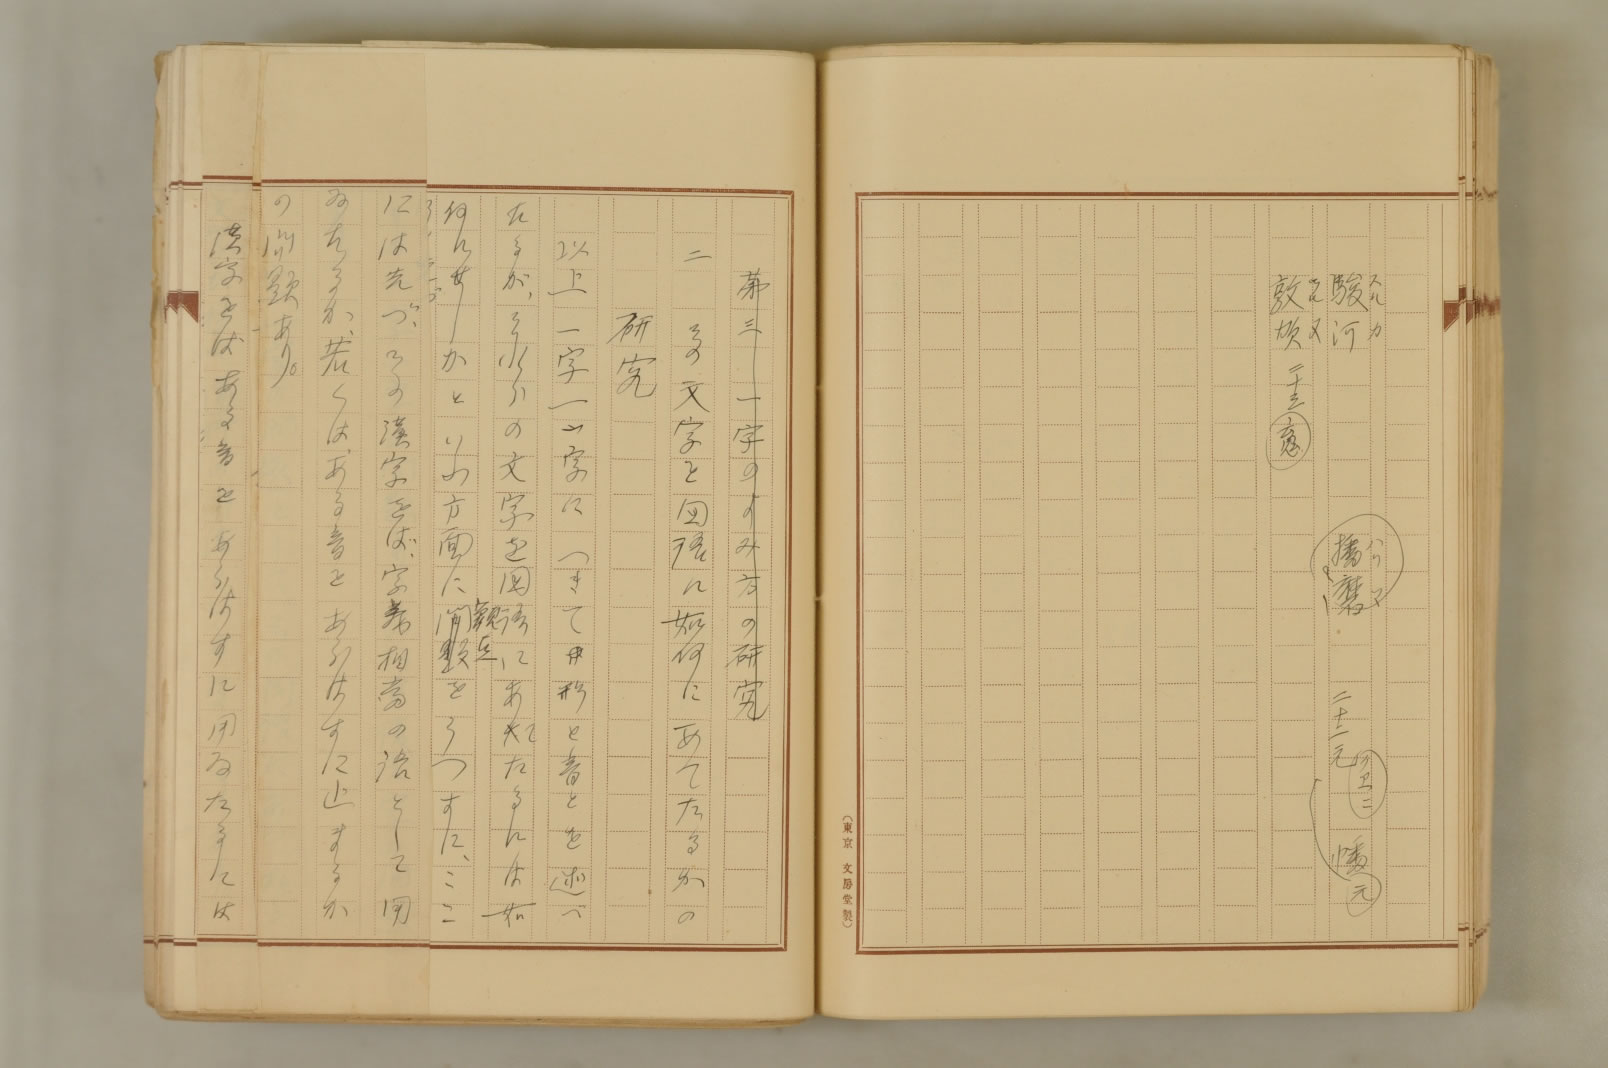 スルカ
駿河
敦煩
二十三
ハリマ
播磨
二十二元
幡元
(東京 文房堂製)
第三 一字のよみ方の研究
二 その文字を国語に如何にあてたるかの
研究
以上一字一一字につきて形と音とを述べ
たるが、それらの文字を国語にあてたるには如
何にせしかといふ方面に
観点
をうつすに、ここ
には先づ、その漢字をば、字義相当の語として用
ゐたるか、若くはある音をあらはすに止まるか
の問題あり。
漢字をばある音をあらはすに用ゐたるには